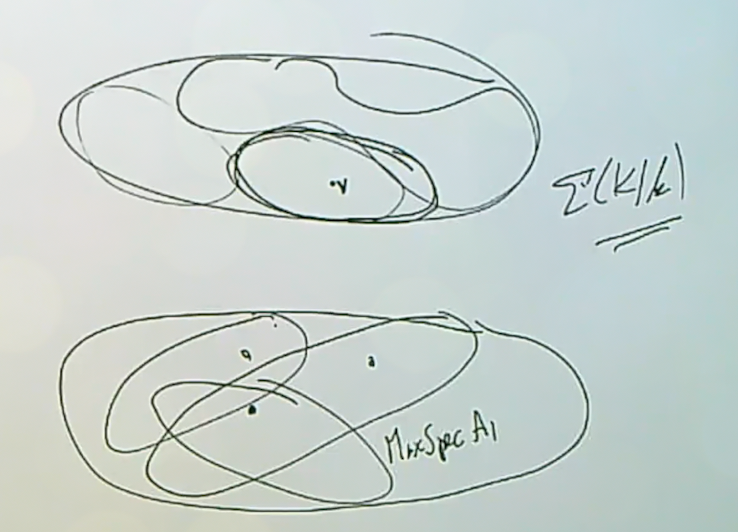 v
Σ(K/k)
MaxSpec A1